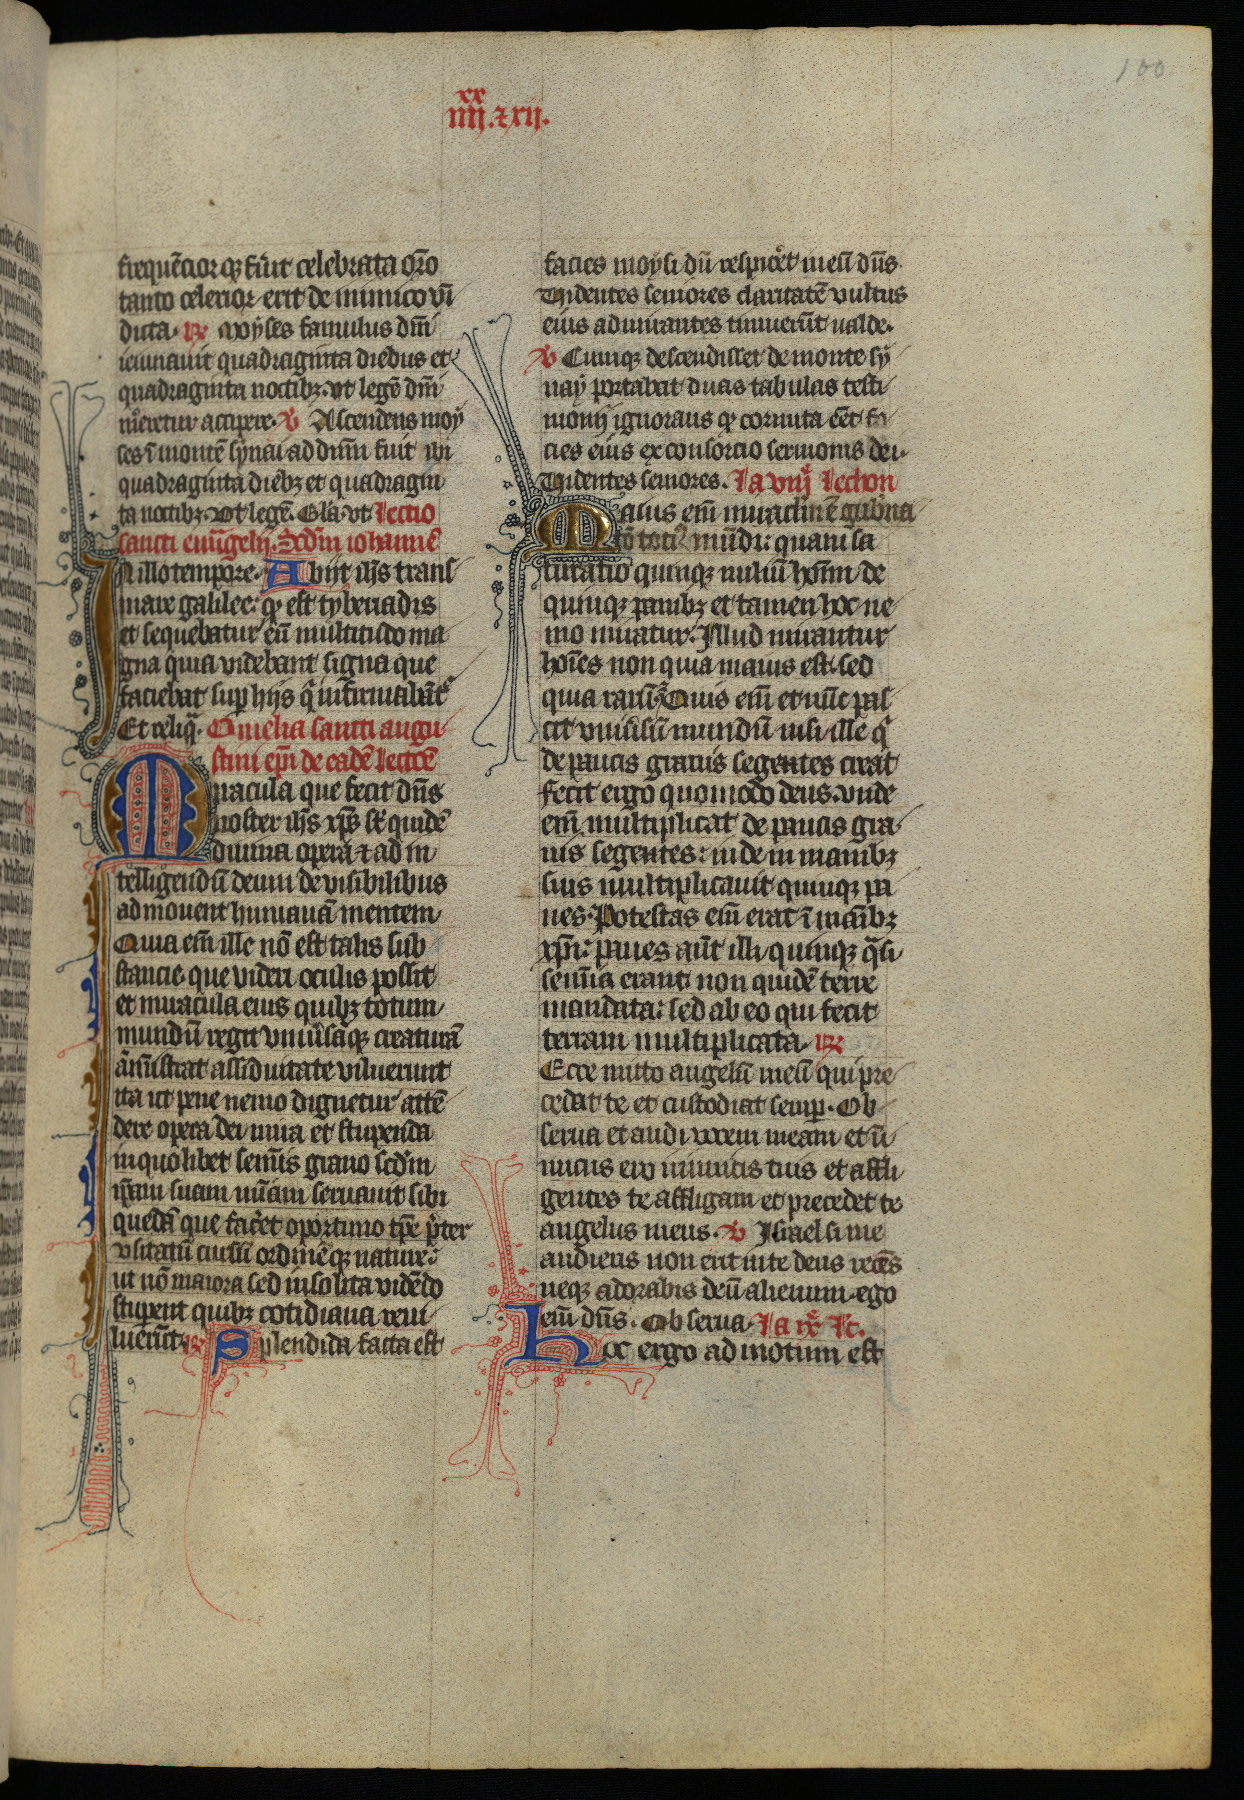 100
xx
iiij. ⁊ xij.
frequẽcior q̃ fũit celebrata orõ
tanto celerior erit de inimico vĩ
dicta. R̃ Moyses famulus dñi
ieiunauit quadraginta diebus et
quadraginta noctibꝫ. vt legẽ dñi
m̃eretur accipere. V̾ Ascendens moy
ses ĩ montẽ synai ad dñm fuit ibi
quadraginta diebꝫ et quadragin
ta noctibꝫ. Vt legẽ. Gl̃a. vt Lectio
sancti ewãgelij. Scd̃m iohannẽ
In illo tempore. Abijt ih̃s trans
mare galilee: q̃ est tyberiadis
et sequebatur eũ multitudo ma
gna quia videbant signa que
faciebat sup hijs q̃ infirmabãt᷑
Et reliq̃. Omelia sancti augu
stini ep̃i de eadẽ lectiõe
Miracula que fecit dñs
noster ih̃s xp̃s sũt quidẽ
diuina opera ⁊ ad in
telligendũ deum de visibilibus
admouent humanã mentem
Quia em̃ ille nõ est talis sub
stancie que videri oculis possit
et miracula eius quibꝫ totum
mundũ regit vniũsãqꝫ creaturã
am̃istrat assiduitate viluerunt
ita ut pene nemo dignetur attẽ
dere opera dei mira et stupenda
in quolibet semĩs grano scd̃m
ip̃am suam mĩam seruauit sibi
quedã que fac̃et oportuno tp̃e p̃ter
vsitatũ cursũ ordinẽqꝫ nature:
ut nõ maiora sed insolita vidẽdo
stuperent quibꝫ cotidiana reui
luerũt. R̃ Splendida facta est
facies moysi dũ respic̃et in eũ dñs
Videntes seniores claritatẽ vultus
eius admirantes timuerũt ualde.
V̾ Cumqꝫ descendisset de monte sy
nay portabat duas tabulas testi
monij ignorans q̃ cornuta eẽt fa
cies eius ex consorcio sermonis dei.
Videntes seniores. Ia viijᵃ lection
Maius em̃ miraclm̃ ẽ gub̃na
tõ toti᷒ mũdi: quam sa
turatio quinqꝫ miliũ hoĩm de
quinqꝫ panibꝫ et tamen hoc ne
mo miratur. Illud mirantur
hoĩes non quia maius est. sed
quia rarũ ẽ. Quis em̃ et nũc pas
cit vniũsũ mundũ nisi ille q̃
de paucis granis segetes creat
fecit ergo quomodo deus. vnde
em̃ multiplicat de paucis gra
nis segetes: inde in manibꝫ
suis multiplicauit quinqꝫ pa
nes. Potestas em̃ erat ĩ mãibꝫ
xp̃i: panes aũt illi quinqꝫ q̃si
semĩa erant: non quidẽ terre
mandata: sed ab eo qui fecit
terram multiplicata. R̃
Ecce mitto angelũ meũ qui pre
cedat te et custodiat semp̃. Ob
serua et audi vocem meam et ĩ
micus ero inimicis tuis et affli
gentes te affligam et precedet te
angelus meus. V̾ Israel si me
audieris non erit in te deus recẽs
neqꝫ adorabis deũ alienum. ego
em̃ dñs. Obserua. Ia ixᵃ lc̃.
Hoc ergo ad motum est